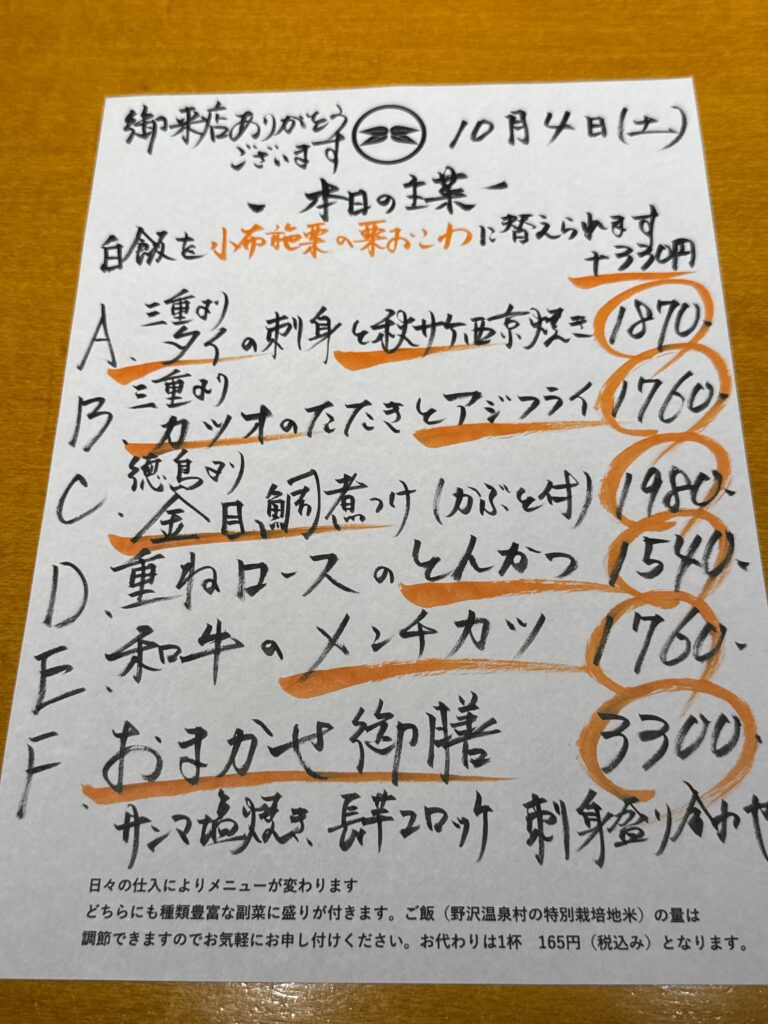 御来店ありがとう
ございます
10月4日(土)
- 本日の主菜 -
白飯を小布施栗の栗おこわに替えられます
+330円
三重より
A、タイの刺身と秋サケ西京焼き 1870-
三重より
B、カツオのたたきとアジフライ 1760-
徳島より
C、金目鯛煮つけ(かぶと付) 1980-
D、重ねロースのとんかつ 1540-
E、和牛のメンチカツ 1760-
F、おまかせ御膳 3300-
サンマ塩焼き、長芋コロッケ 刺身盛り合わせ
日々の仕入によりメニューが変わります
どちらにも種類豊富な副菜に盛りが付きます。ご飯(野沢温泉村の特別栽培地米)の量は
調節できますのでお気軽にお申し付けください。お代わりは1杯 165円(税込み)となります。